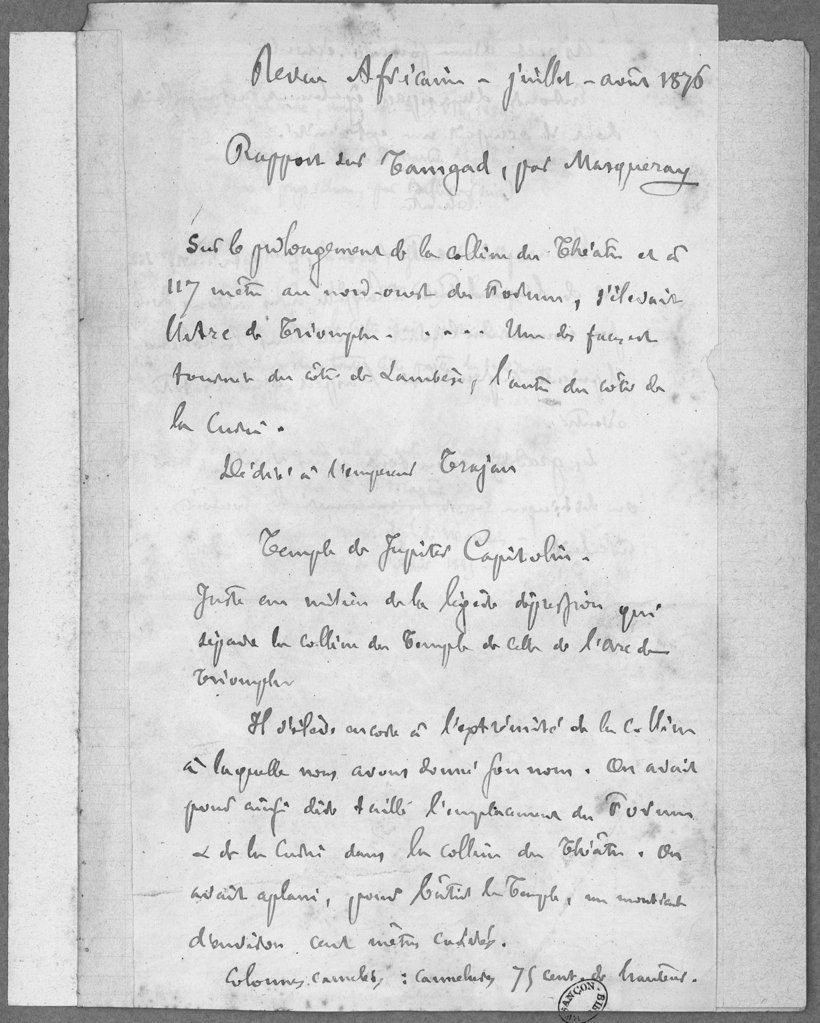 Revue Africaine - juillet - août 1876
Rapport sur Tamgad, par Masqueray
Sur le prolongement de la colline du Théâtre et à
117 mètres au nord-ouest du Forum, s'élevait
l'Arc de Triomphe. . . . . . Une des façades
tournée du côté de Lambèse, l'autre du côté de
la Curie.
Dédié à l'empereur Trajan
Temple de Jupiter Capitolin.
Juste au milieu de la légère dépression qui
sépare la colline du Temple de celle de l'arc de
Triomphe
Il s'élève encore à l'extrémité de la colline
à laquelle nous avons donné son nom. On avait
pour ainsi dire taillé l'emplacement du Forum
& de la Curie dans la colline du Théâtre. On
avait aplani, pour bâtir le Temple, un monticule
d'environ cent mètres carrés.
Colonnes cannelées : cannelures 75 cent. de hauteur.
BESANÇON. BIB